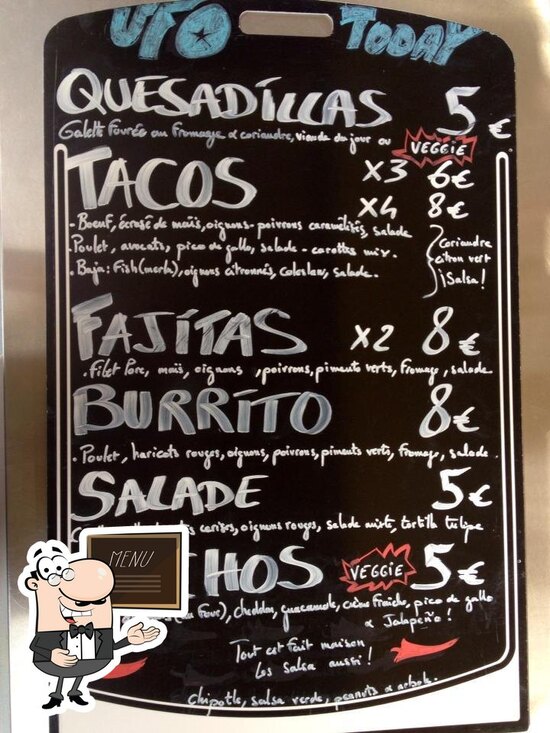 UFO TODAY
QUESADILLAS 5 €
Galette Fourrée au Fromage & coriandre, viande du jour ou VEGGIE
TACOS x3 6€
x4 8€
- Boeuf, écrasé de maïs, oignons-poivrons caramélisés, salade
- Poulet, avocats, pico de gallo, salade - carottes mix.
- Baja: Fish (merlu), oignons citronnés, coleslaw, salade.
Coriandre
citron vert
¡Salsa!
FAJITAS x2 8€
. Filet Porc, maïs, oignons, poivrons, piments verts, Fromage, salade
BURRITO 8€
. Poulet, haricots rouges, oignons, poivrons, piments verts, fromage, salade
SALADE 5€
cerises, oignons rouges, salade mixte, tortilla tulipe
HOS VEGGIE 5€
(au Four), cheddar, guacamole, crème fraîche, pico de gallo
& Jalapeño!
Tout est fait maison
Les Salsa aussi!
Chipotle, salsa verde, peanuts & arbole.
MENU